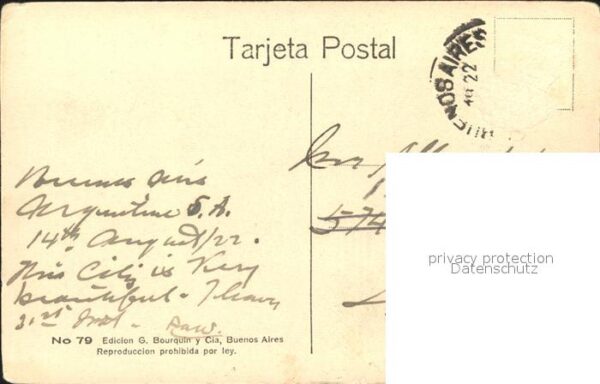 Tarjeta Postal
BUENOS AIRES
22
Buenos Aires
Argentine S.A.
14th August/22.
This City is Very
beautiful - I leave
21st Inst -
574
privacy protection
Datenschutz
No 79 Edicion G. Bourquin y Cia, Buenos Aires
Reproduccion prohibida por ley.